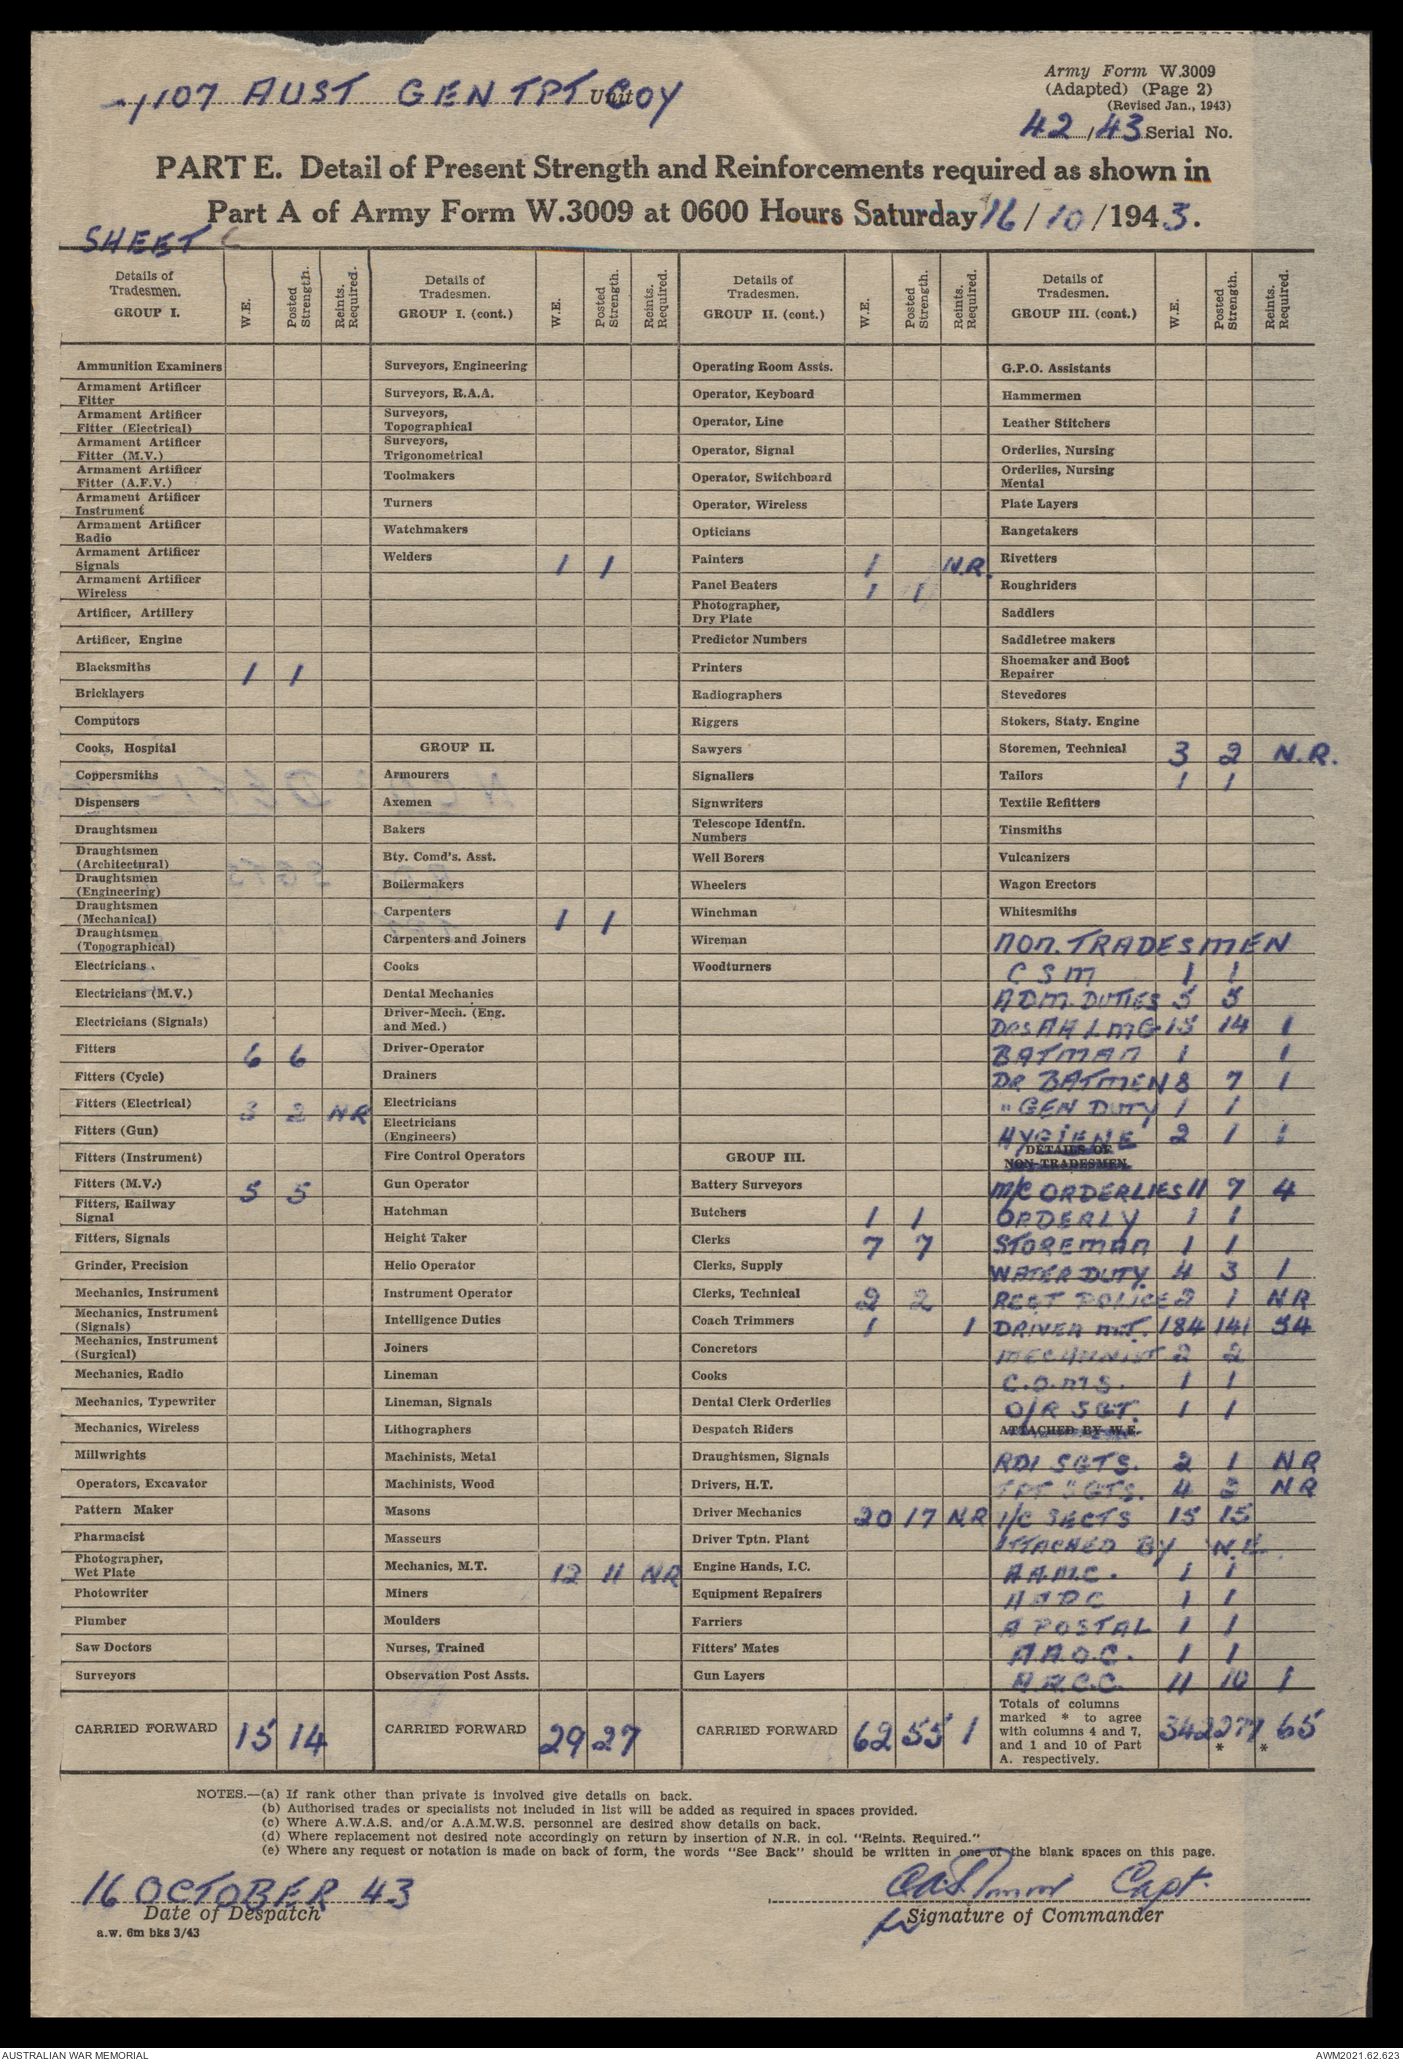 107 AUST GEN TPT COY
Unit
Army Form W.3009
(Adapted) (Page 2)
(Revised Jan., 1943)
42/43 Serial No.
PART E. Detail of Present Strength and Reinforcements required as shown in
Part A of Army Form W.3009 at 0600 Hours Saturday 16/10/1943.
SHEET
Details of Tradesmen. GROUP I. W.E. Posted Strength. Reints. Required.
Ammunition Examiners
Armament Artificer Fitter
Armament Artificer Fitter (Electrical)
Armament Artificer Fitter (M.V.)
Armament Artificer Fitter (A.F.V.)
Armament Artificer Instrument
Armament Artificer Radio
Armament Artificer Signals
Armament Artificer Wireless
Artificer, Artillery
Artificer, Engine
Blacksmiths 1 1
Bricklayers
Computors
Cooks, Hospital
Coppersmiths
Dispensers
Draughtsmen
Draughtsmen (Architectural)
Draughtsmen (Engineering)
Draughtsmen (Mechanical)
Draughtsmen (Topographical)
Electricians
Electricians (M.V.)
Electricians (Signals)
Fitters 6 6
Fitters (Cycle)
Fitters (Electrical) 3 2 NR
Fitters (Gun)
Fitters (Instrument)
Fitters (M.V.) 5 5
Fitters, Railway Signal
Fitters, Signals
Grinder, Precision
Mechanics, Instrument
Mechanics, Instrument (Signals)
Mechanics, Instrument (Surgical)
Mechanics, Radio
Mechanics, Typewriter
Mechanics, Wireless
Millwrights
Operators, Excavator
Pattern Maker
Pharmacist
Photographer, Wet Plate
Photowriter
Plumber
Saw Doctors
Surveyors
CARRIED FORWARD 15 14
Details of Tradesmen. GROUP I. (cont.) W.E. Posted Strength. Reints. Required.
Surveyors, Engineering
Surveyors, R.A.A.
Surveyors, Topographical
Surveyors, Trigonometrical
Toolmakers
Turners
Watchmakers
Welders 1 1
GROUP II.
Armourers
Axemen
Bakers
Bty. Comd's. Asst.
Boilermakers
Carpenters 1 1
Carpenters and Joiners
Cooks
Dental Mechanics
Driver-Mech. (Eng. and Med.)
Driver-Operator
Drainers
Electricians
Electricians (Engineers)
Fire Control Operators
Gun Operator
Hatchman
Height Taker
Helio Operator
Instrument Operator
Intelligence Duties
Joiners
Lineman
Lineman, Signals
Lithographers
Machinists, Metal
Machinists, Wood
Masons
Masseurs
Mechanics, M.T. 12 11 NR
Miners
Moulders
Nurses, Trained
Observation Post Assts.
CARRIED FORWARD 29 27
Details of Tradesmen. GROUP II. (cont.) W.E. Posted Strength. Reints. Required.
Operating Room Assts.
Operator, Keyboard
Operator, Line
Operator, Signal
Operator, Switchboard
Operator, Wireless
Opticians
Painters 1 N.R.
Panel Beaters 1 1
Photographer, Dry Plate
Predictor Numbers
Printers
Radiographers
Riggers
Sawyers
Signallers
Signwriters
Telescope Identfn. Numbers
Well Borers
Wheelers
Winchman
Wireman
Woodturners
GROUP III.
Battery Surveyors
Butchers 1 1
Clerks 7 7
Clerks, Supply
Clerks, Technical 2 2
Coach Trimmers 1 1
Concretors
Cooks
Dental Clerk Orderlies
Despatch Riders
Draughtsmen, Signals
Drivers, H.T.
Driver Mechanics 20 17 NR
Driver Tptn. Plant
Engine Hands, I.C.
Equipment Repairers
Farriers
Fitters' Mates
Gun Layers
CARRIED FORWARD 62 55 1
Details of Tradesmen. GROUP III. (cont.) W.E. Posted Strength. Reints. Required.
G.P.O. Assistants
Hammermen
Leather Stitchers
Orderlies, Nursing
Orderlies, Nursing Mental
Plate Layers
Rangetakers
Rivetters
Roughriders
Saddlers
Saddletree makers
Shoemaker and Boot Repairer
Stevedores
Stokers, Staty. Engine
Storemen, Technical 3 2 N.R.
Tailors 1 1
Textile Refitters
Tinsmiths
Vulcanizers
Wagon Erectors
Whitesmiths
NON. TRADESMEN
C S M 1 1
ADM. DUTIES 5 5
DRS AA LMG 15 14 1
BATMAN 1 1
DR BATMEN 8 7 1
" GEN DUTY 1 1
HYGIENE 2 1 1
DETAILS OF NON-TRADESMEN.
M/C ORDERLIES 11 7 4
ORDERLY 1 1
STOREMAN 1 1
WATER DUTY. 4 3 1
REGT POLICE 2 1 NR
DRIVER M.T. 184 141 54
MECHANIST 2 2
C.Q.M.S. 1 1
O/R SGT. 1 1
ATTACHED BY W.E.
RDI SGTS. 2 1 NR
TPT SGTS. 4 2 NR
I/C SECTS 15 15
ATTACHED BY W.E.
A.A.M.C. 1 1
AADC 1 1
A POSTAL 1 1
A.A.O.C. 1 1
A.A.C.C. 11 10 1
Totals of columns marked * to agree with columns 4 and 7, and 1 and 10 of Part A. respectively. 342 277 * 65 *
NOTES.—(a) If rank other than private is involved give details on back.
(b) Authorised trades or specialists not included in list will be added as required in spaces provided.
(c) Where A.W.A.S. and/or A.A.M.W.S. personnel are desired show details on back.
(d) Where replacement not desired note accordingly on return by insertion of N.R. in col. "Reints. Required."
(e) Where any request or notation is made on back of form, the words "See Back" should be written in one of the blank spaces on this page.
16 OCTOBER 43
Date of Despatch
Capt.
Signature of Commander
a.w. 6m bks 3/43
AUSTRALIAN WAR MEMORIAL
AWM2021.62.623